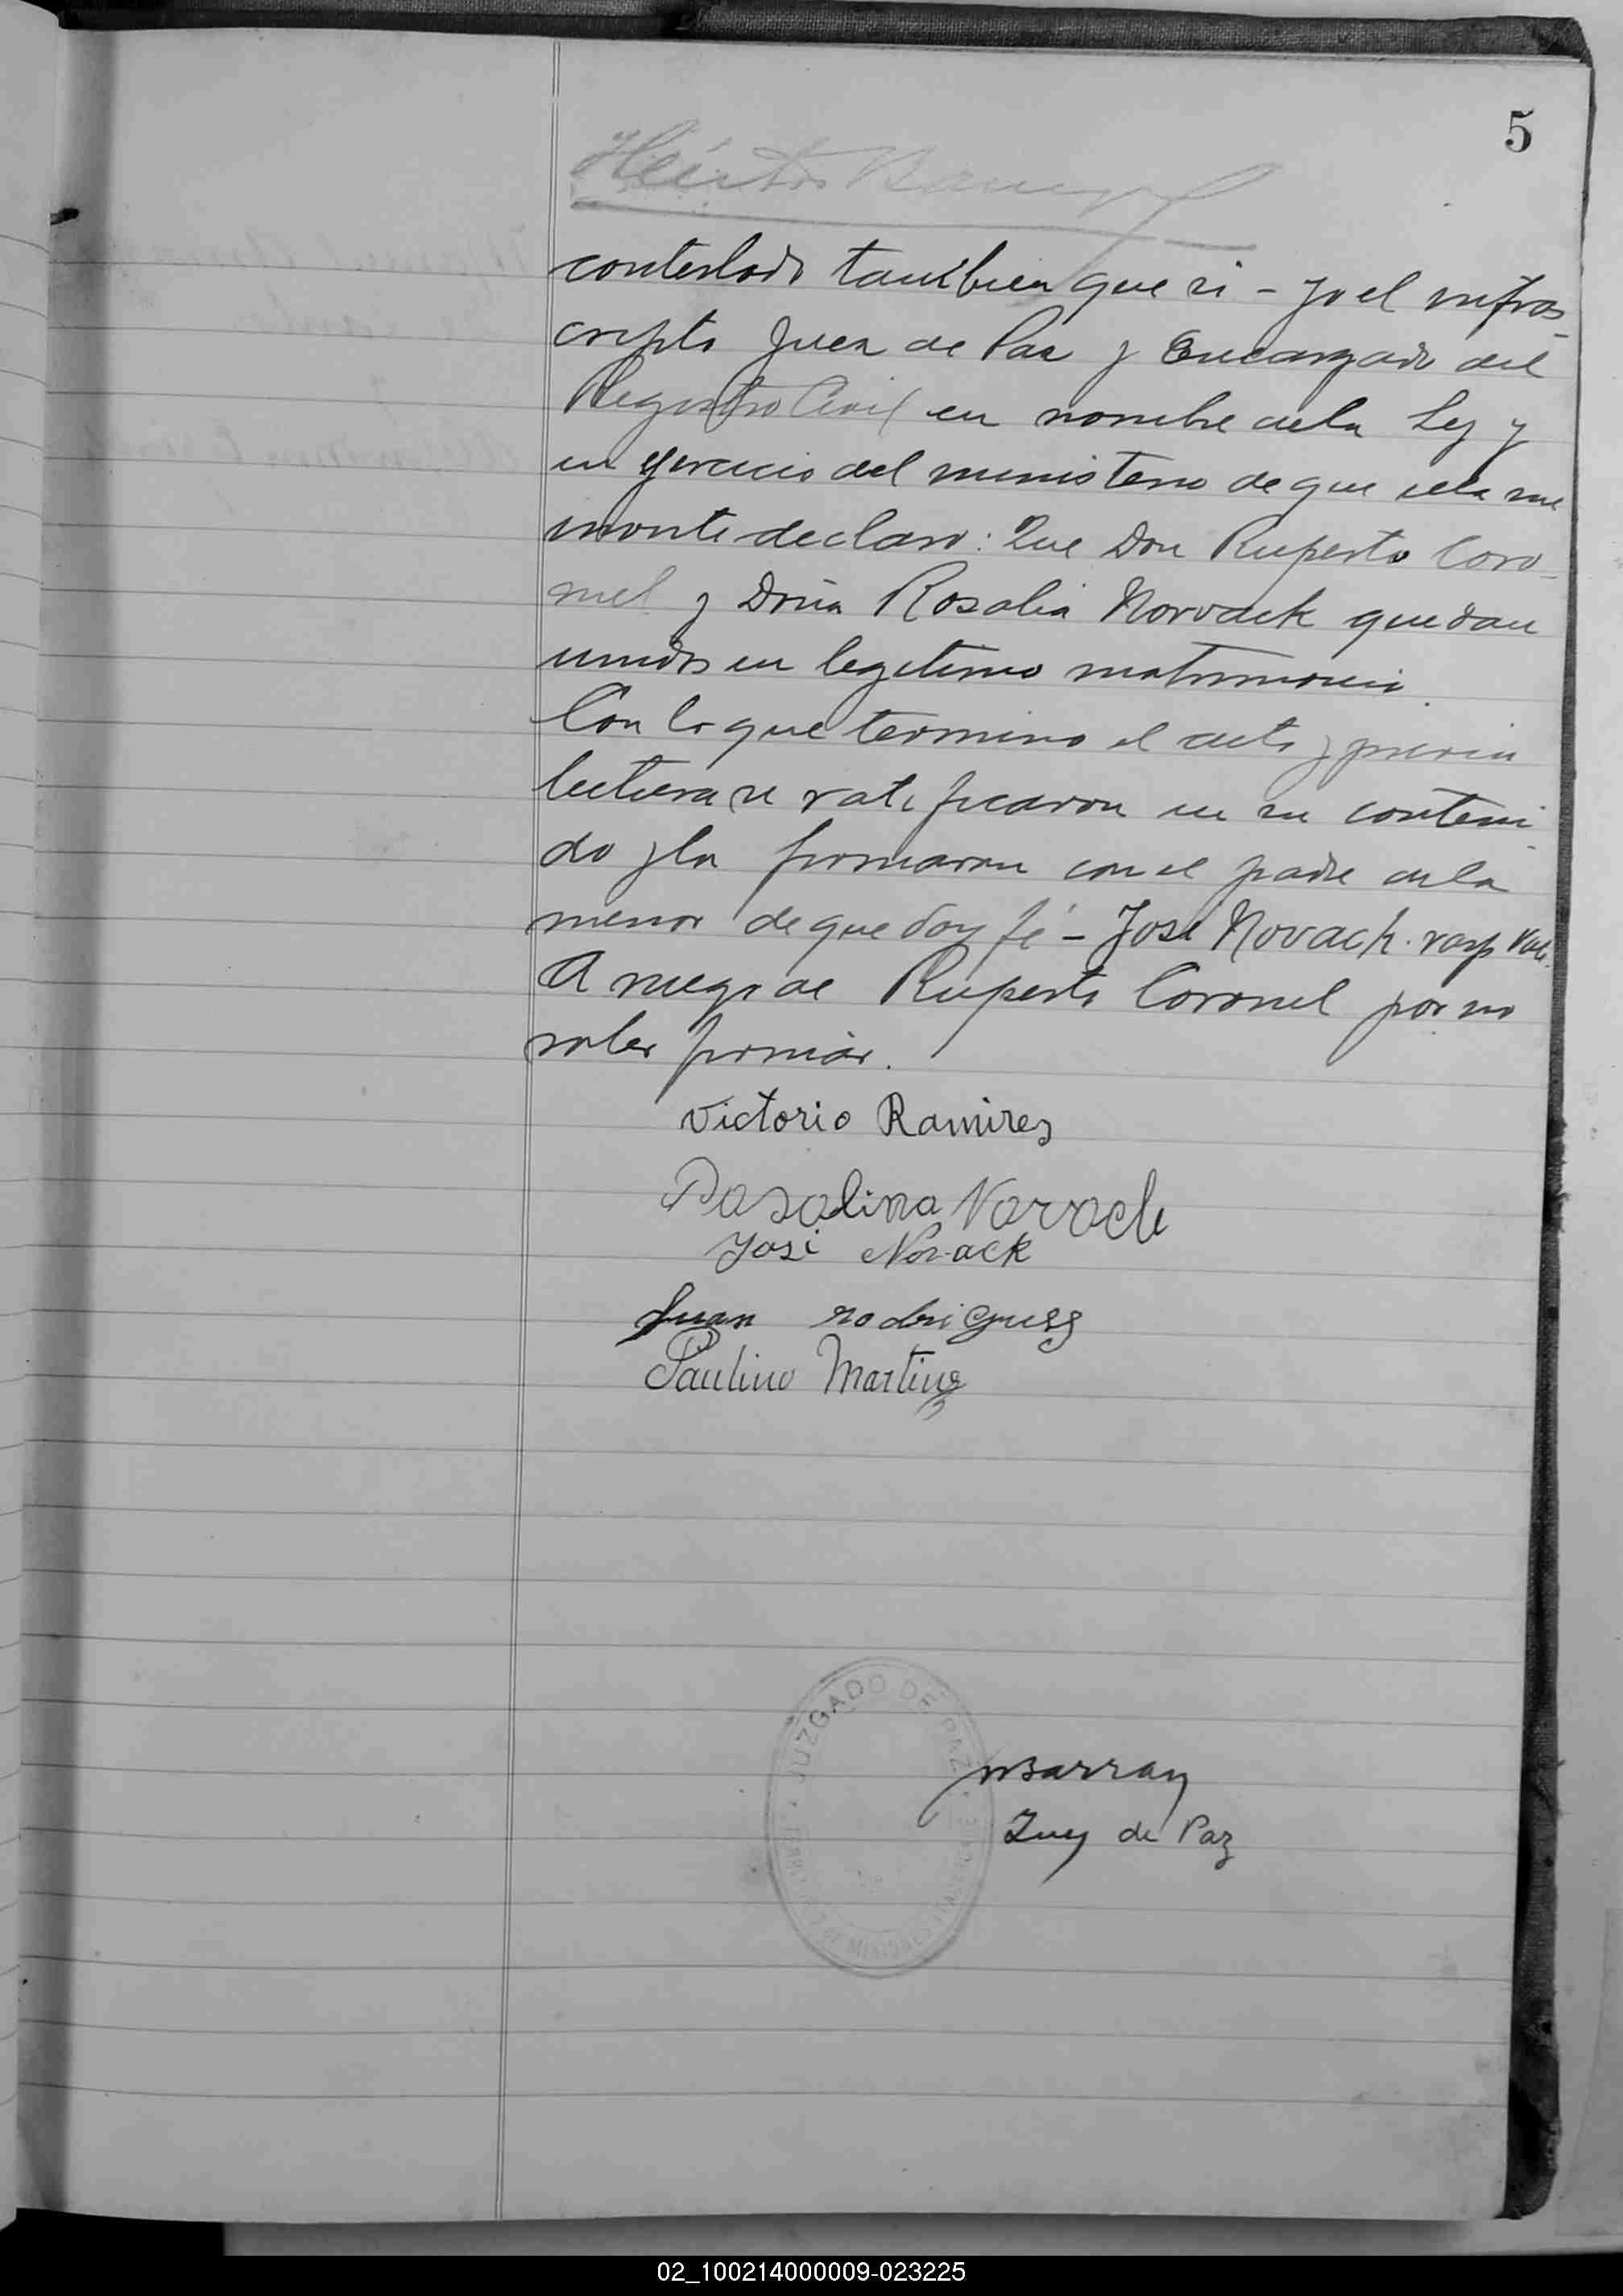 5
Héctor
contestado tambien que si - yo el infras-
cripto Juez de Paz y Encargado del
Registro Civil en nombre de la Ley y
en ejercicio del ministerio de que ella me
inviste declaro: Que Don Ruperto Coro-
nel y Doña Rosalia Novack quedan
unidos en legitimo matrimonio.
Con lo que termino el acto y previa
lectura se ratificaron en su conteni-
do y la firmaron con el padre de la
menor de que doy fé - José Novack. rasp vale.
A ruego de Ruperto Coronel por no
saber firmar.
Victorio Ramires
Rosalina Novack
José Novack
Juan rodriguez
Paulino Martinez
JUZGADO DE PAZ
MISIONES
Juez de Paz
02_100214000009-023225